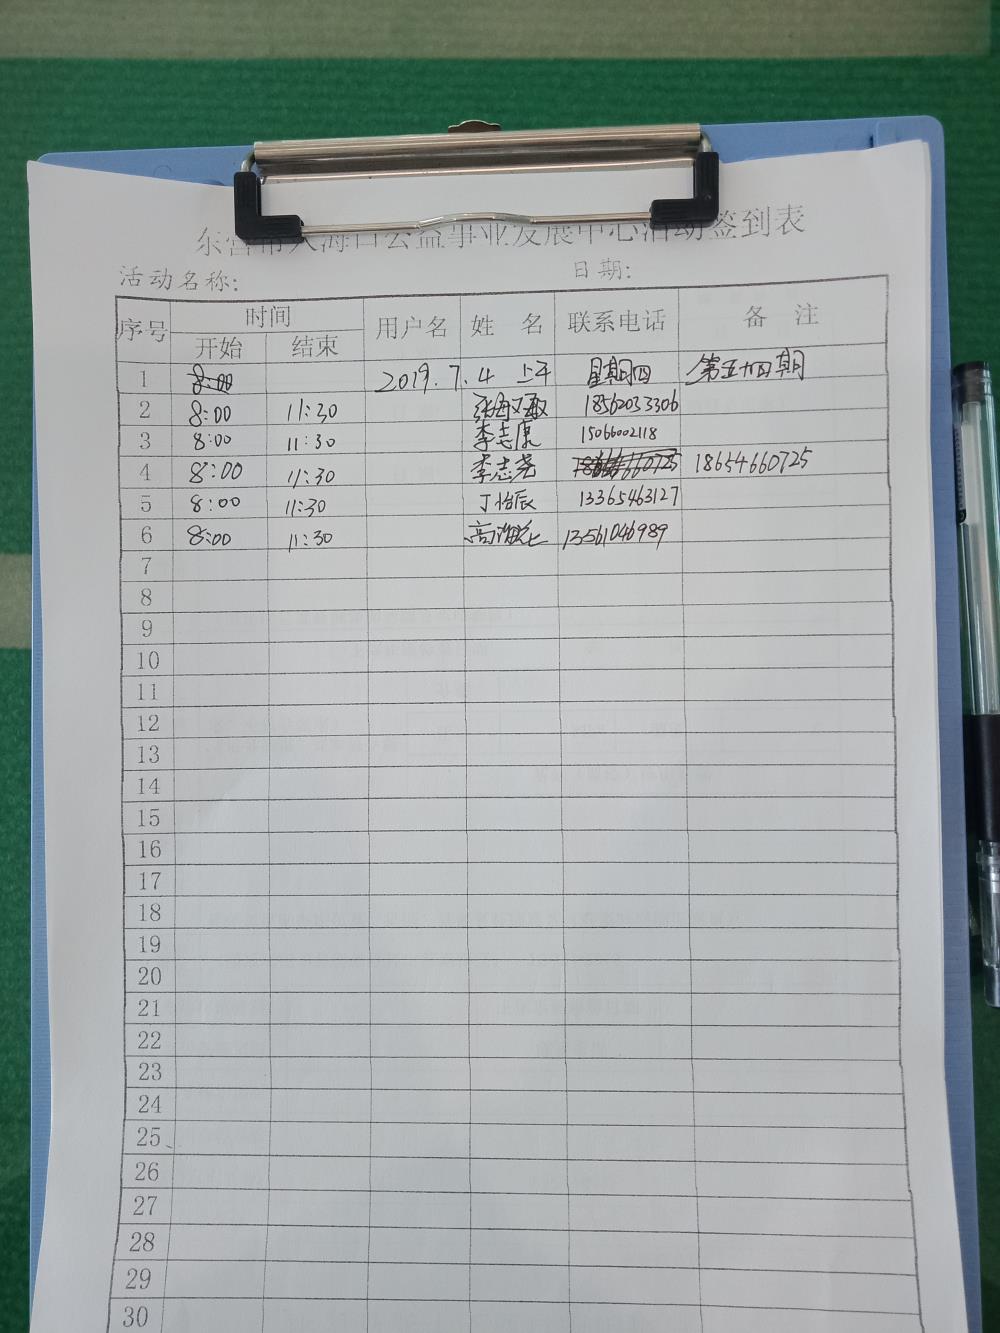 东营市入海口公益事业发展中心活动签到表
活动名称: 日期:
序号 时间 用户名 姓 名 联系电话 备 注
开始 结束
1 8:00 2019.7.4 上午 星期四 第五十四期
2 8:00 11:30 18562033306
3 8:00 11:30 李志康 15066002118
4 8:00 11:30 李志尧 18654660725
5 8:00 11:30 丁怡辰 13365463127
6 8:00 11:30 13561046989
7
8
9
10
11
12
13
14
15
16
17
18
19
20
21
22
23
24
25
26
27
28
29
30